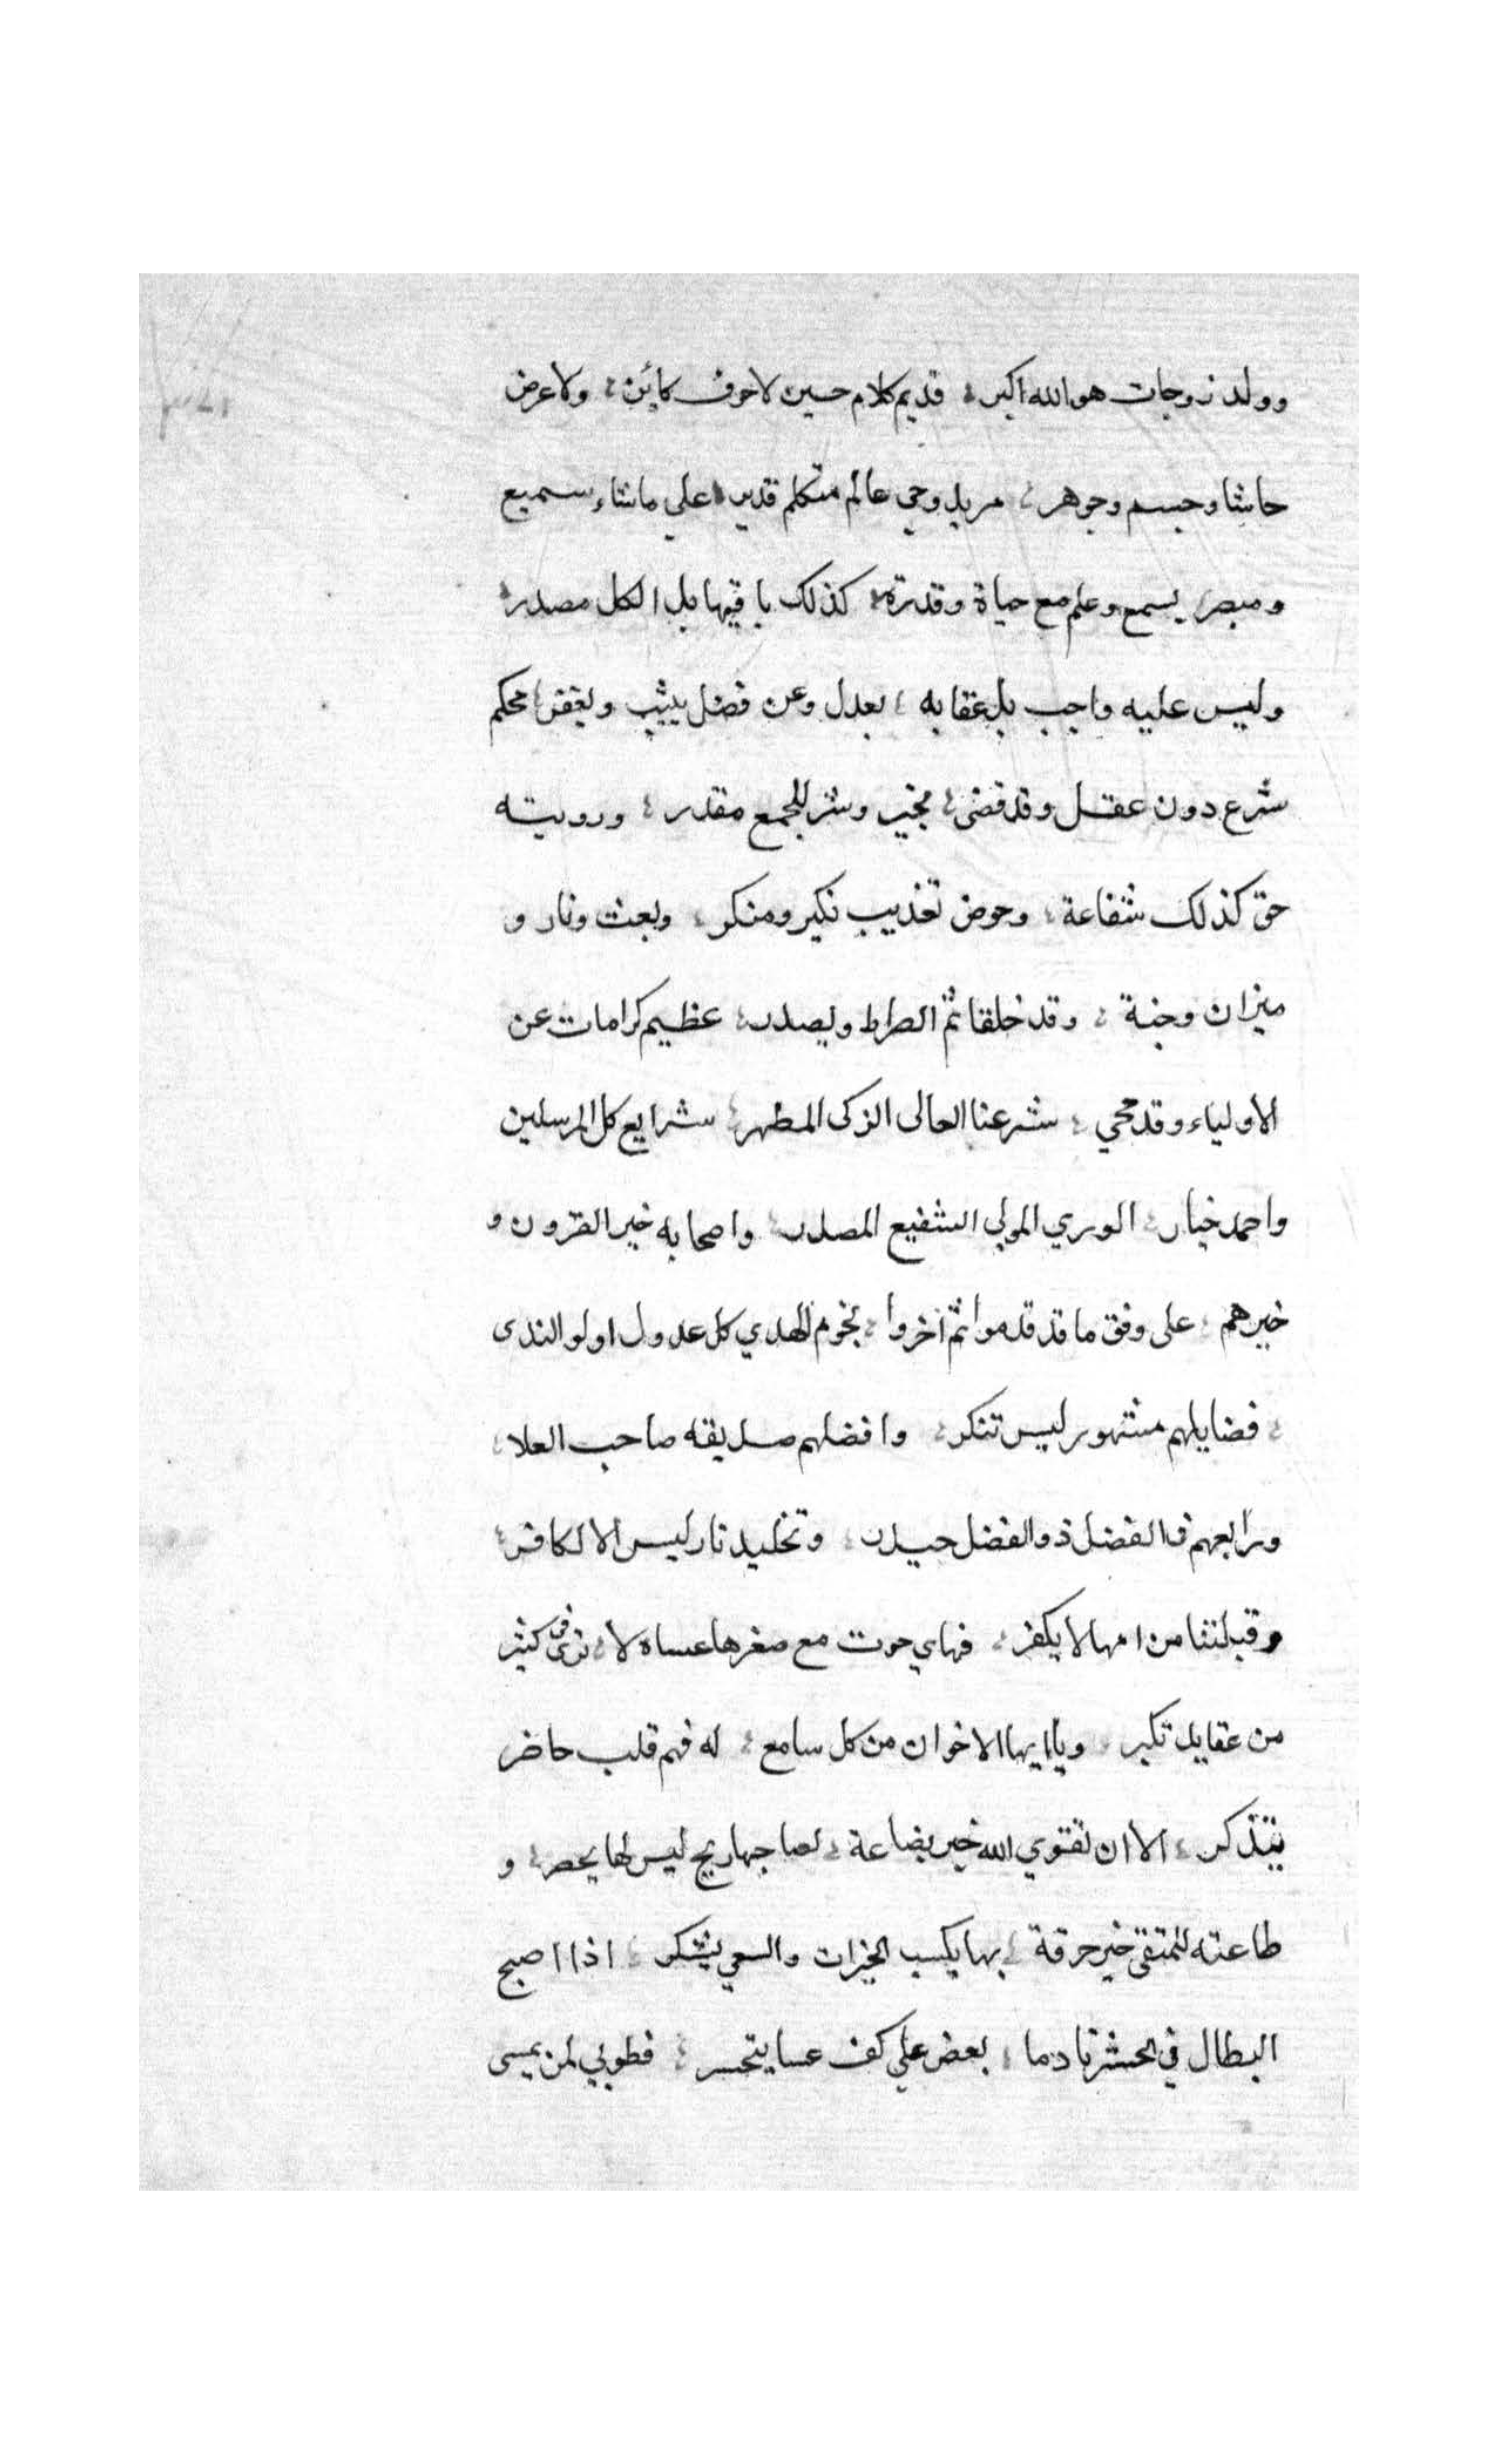 وولد زوجات هو الله اكبر ؛ قديم كلام حسين لا حرف كائن ؛ ولا عرض
حاشا وجسم وجوهر ؛ مريد وحي عالم متكلم قدير ؛ علي ماشاء سميع
ومبصر ؛ يسمع وعلم مع حياة وقدرة ؛ كذلك باقيها بل الكل مصدر ؛
وليس عليه واجب بل عقابه ؛ بعدل وعن فضل يثيب ويغفر ؛ محكم
شرع دون عقل وقد قضى ؛ بخير وشر للجمع مقدر ؛ ورويته
حق كذلك شفاعة ؛ وحوض تعذيب نكير ومنكر ؛ وبعث ونار و
ميزان وجنة ؛ وقد خلقا ثم الصراط ويصدر ؛ عظيم كرامات عن
الاولياء وقد محي ؛ شرعنا العالى الزكى المطهر ؛ شرايع كل المرسلين
واحمد خيار ؛ الوري المولي الشفيع المصدر ؛ واصحابه خير القرون و
خيرهم ؛ على وفق ما قد قدموا ثم اخروا ؛ نجوم الهدي كل عدول اولو الندى
؛ فضايلهم مشهور ليس تنكر ؛ وافضلهم صديقه صاحب العلا ؛
ورابعهم في الفضل ذو الفضل حيدر ؛ وتخليد نار ليس الا لكافر ؛
وقبلتنا من امها لا يكفر ؛ فهاي حوت مع صغرها عساه لا ؛ ترى في كثير
من عقايد تكبر ؛ ويا ايها الاخوان من كل سامع ؛ له فهم قلب حاضر
يتذكر ؛ الا ان تقوي الله خير بضاعة ؛ لصاحبها ربح ليس لها يحصر ؛ و
طاعته للمتقى خير حرفة ؛ بها يكسب الخيرات والسعي يشكر ؛ اذا اصبح
البطال في الحشر نادما ؛ بعض علي كف عسا يتحسر ؛ فطوبي لمن يمسى